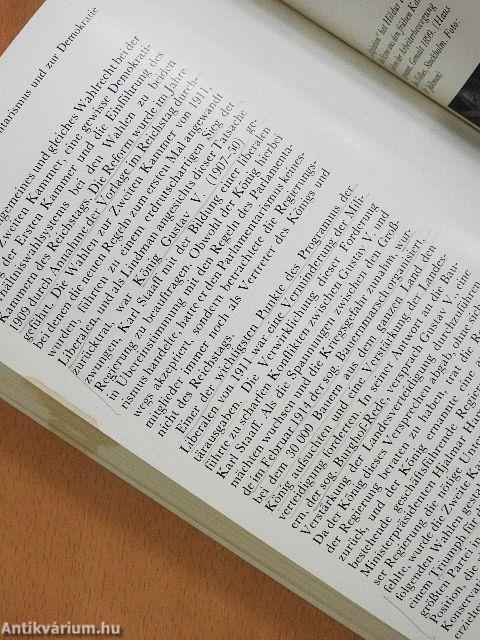 ntarismus und zur Demokratie
lgemeines und gleiches Wahlrecht bei der
Zweiten Kammer, eine gewisse Demokrati-
g der Ersten Kammer und die Einführung des
hältniswahlsystems bei den Wahlen zu beiden
Kammern des Reichstags. Die Reform wurde im Jahre
1909 durch Annahme der Vorlage im Reichstag durch-
geführt. Die Wahlen zur Zweiten Kammer von 1911,
bei denen die neuen Regeln zum ersten Mal angewandt
wurden, führten zu einem erdrutschartigen Sieg der
Liberalen, und als Lindman angesichts dieser Tatsache
zurücktrat, war König Gustav V. (1907-50) ge-
zwungen, Karl Staaff mit der Bildung einer liberalen
Regierung zu beauftragen. Obwohl der König hierbei
in Übereinstimmung mit den Regeln des Parlamenta-
rismus handelte, hatte er den Parlamentarismus keines-
wegs akzeptiert, sondern betrachtete die Regierungs-
mitglieder immer noch als Vertreter des Königs und
nicht des Reichstags.
Einer der wichtigsten Punkte des Programms der
Liberalen von 1911 war eine Verminderung der Mili-
tärausgaben. Die Verwirklichung dieser Forderung
führte zu scharfen Konflikten zwischen Gustav V. und
Karl Staaff. Als die Spannungen zwischen den Groß-
mächten wuchsen und die Kriegsgefahr zunahm, wur-
de im Februar 1914 der sog. Bauernmarsch organisiert,
bei dem 30 000 Bauern aus dem ganzen Land den
König aufsuchten und eine Verstärkung der Landes-
verteidigung forderten. In seiner Antwort an die Bau-
ern, der sog. Burghof-Rede, versprach Gustav V. eine
Verstärkung der Landesverteidigung durchzuführen
Da der König dieses Versprechen abgab, ohne sich
der Regierung beraten zu haben, trat die Re
zurück, und der König ernannte eine
bestehende geschäftsführende Regier
Ministerpräsidenten Hjalmar Ham
ser Regierung die nötige Unter
fehlte, wurde die Zweite Ka
folgenden Wahlen gestal
einem Triumph für
größten Partei in
Position, die
Konservat
zielte